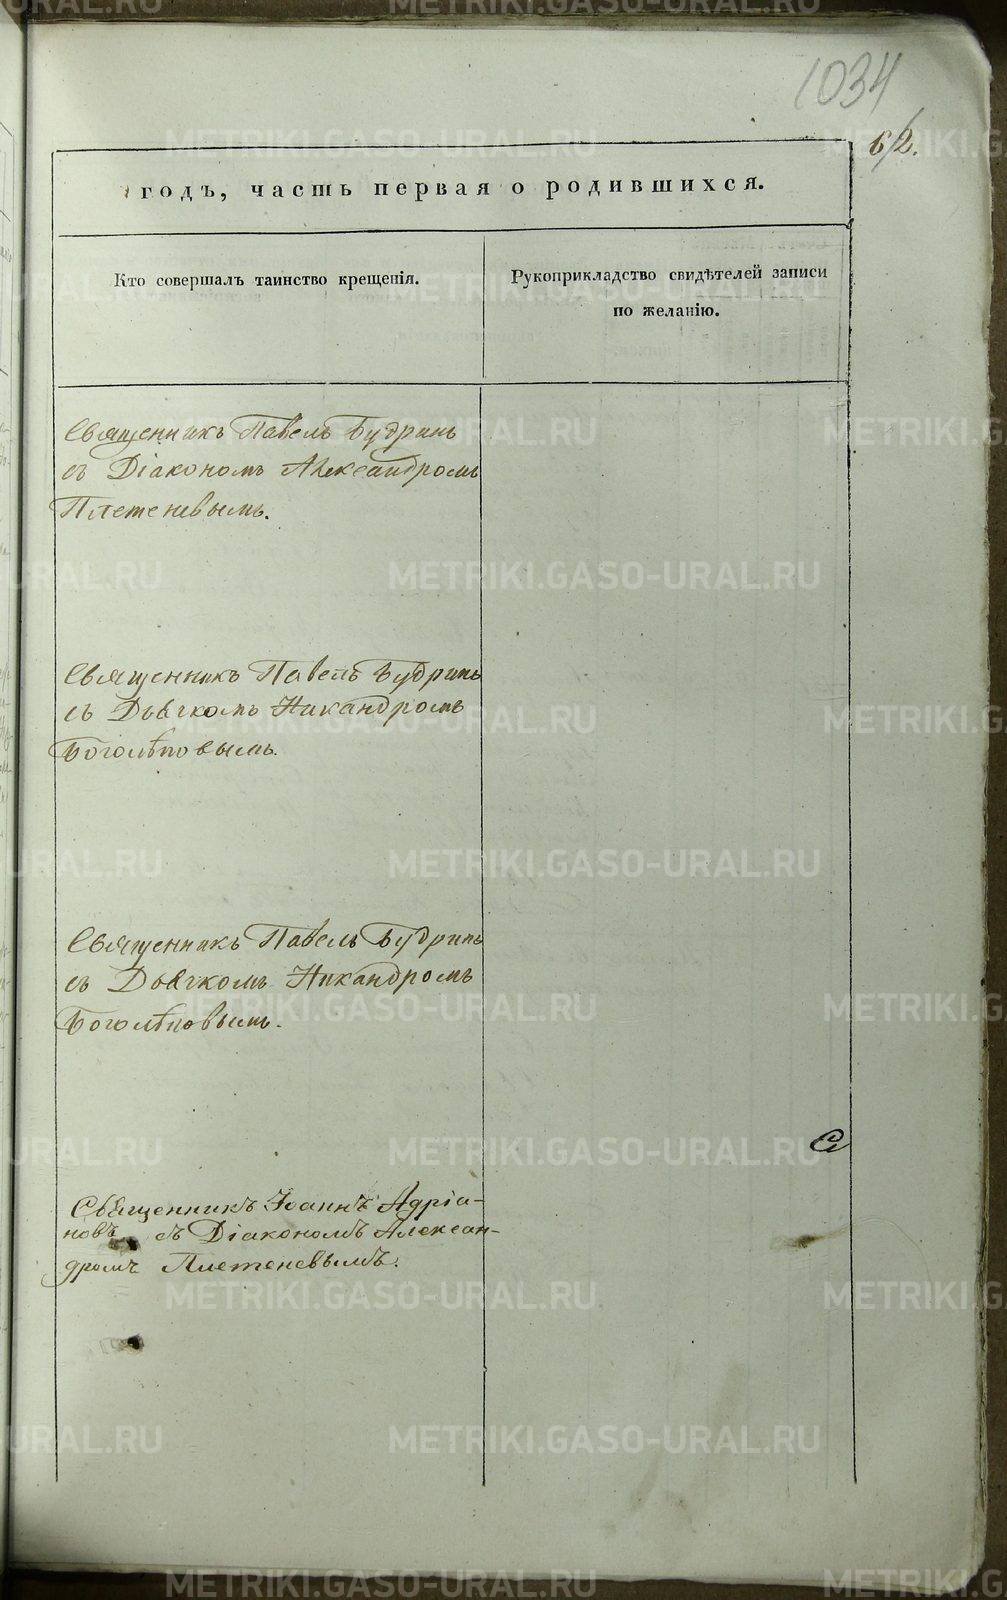 1034
62.
годъ, часть первая о родившихся.
Кто совершалъ таинство крещенія.
Рукоприкладство свидѣтелей записи
по желанію.
Священникъ Павелъ Будринъ
съ Діакономъ Александромъ
Плетеневымъ.
Священникъ Павелъ Будринъ
съ Дьячкомъ Никандромъ
Боголѣповымъ.
Священникъ Павелъ Будринъ
съ Дьячкомъ Никандромъ
Боголѣповымъ.
Священникъ Іоаннъ Адріа-
новъ съ Діакономъ Алексан-
дромъ Плетеневымъ.
METRIKI.GASO-URAL.RU